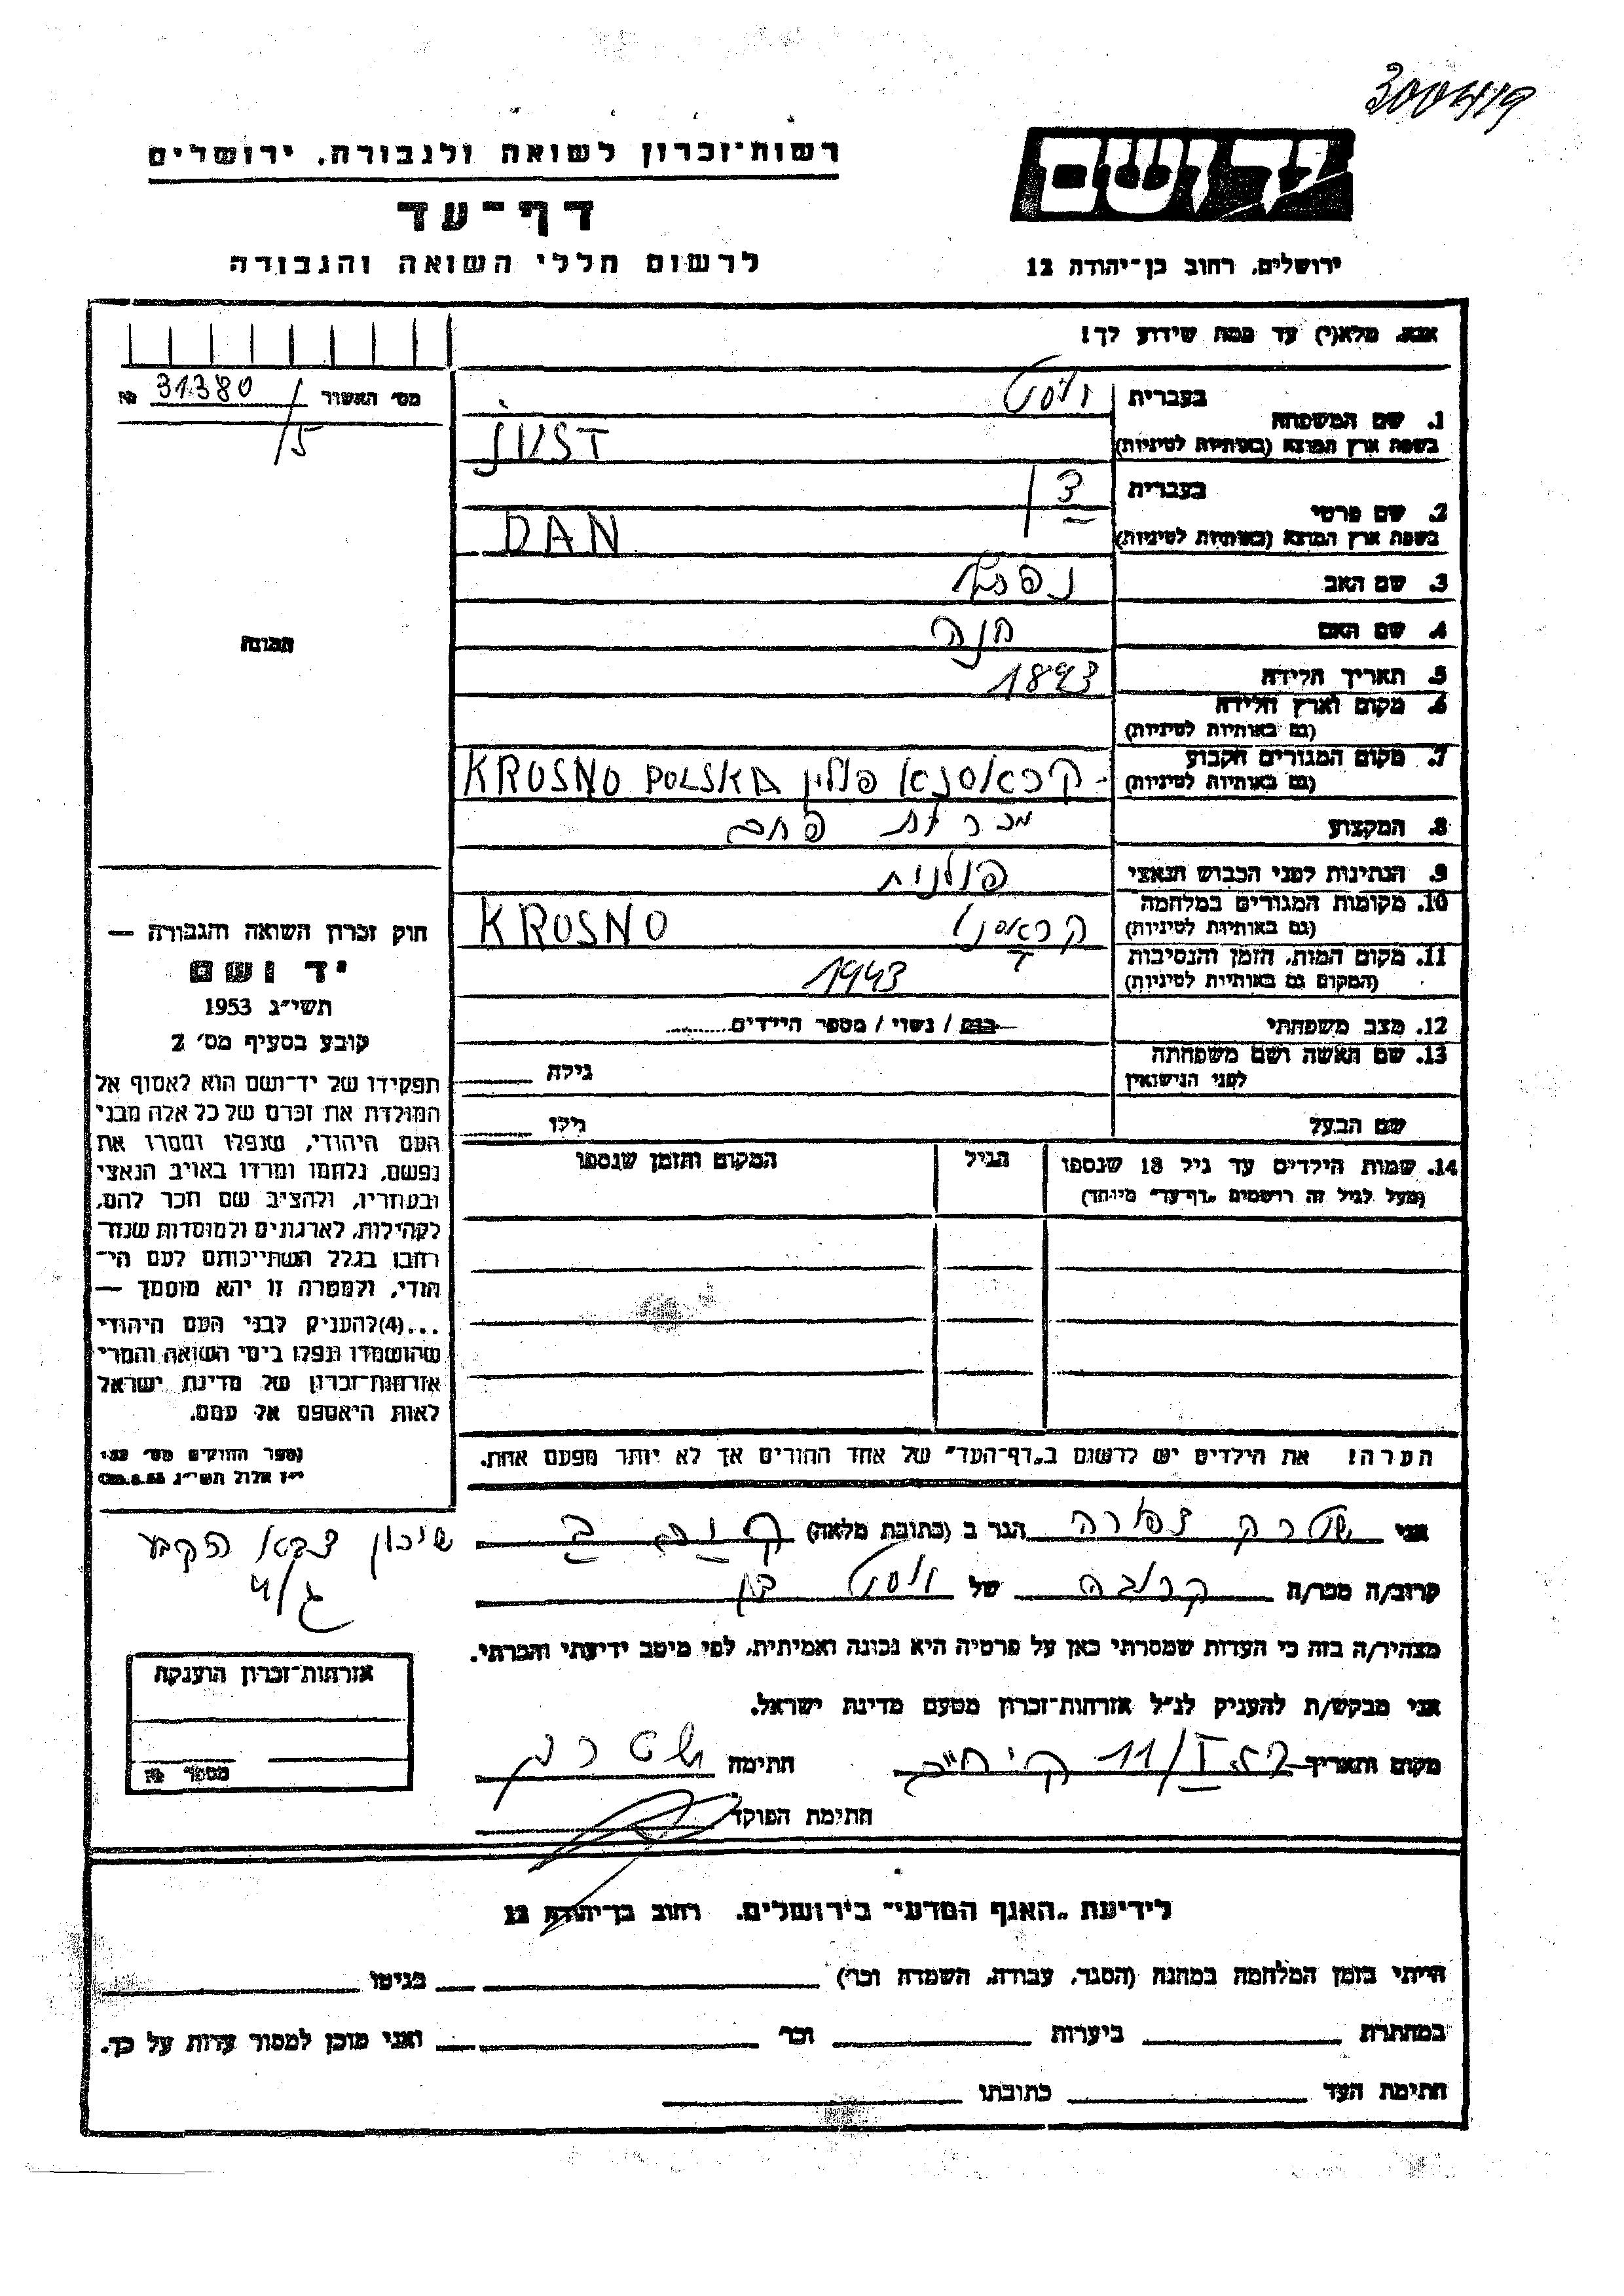 300419
רשות־זכרון לשואה ולגבורה, ירושלים
יד ושם
דף־עד
לרשום חללי השואה והגבורה
ירושלים, רחוב בן־יהודה 12
אנא, מלא(י) עד כמה שידוע לך!
מס׳ האשור 31380 №
/5
1. שם המשפחה
בעברית יוסט
בשפת ארץ המוצא (באותיות לטיניות) JUST
2. שם פרטי
בעברית דן
בשפת ארץ המוצא (באותיות לטיניות) DAN
3. שם האב
4. שם האם חנה
5. תאריך הלידה 1893
6. מקום וארץ הלידה
(גם באותיות לטיניות)
7. מקום המגורים הקבוע קראסנא פולין KROSNO POLSKA
(גם באותיות לטיניות)
8. המקצוע מכרות פחם
9. הנתינות לפני הכבוש הנאצי פולנית
10. מקומות המגורים במלחמה קראסנו KROSNO
(גם באותיות לטיניות)
11. מקום המות, הזמן והנסיבות 1943
(המקום גם באותיות לטיניות)
12. מצב משפחתי רווק / נשוי / מספר הילדים
13. שם האשה ושם משפחתה
לפני הנישואין
גילה
שם הבעל גילו
14. שמות הילדים עד גיל 18 שנספו הגיל המקום והזמן שנספו
(מעל לגיל זה רושמים „דף־עד” מיוחד)
הערה! את הילדים יש לרשום ב„דף־העד” של אחד ההורים אך לא יותר מפעם אחת.
תמונה
חוק זכרון השואה והגבורה —
יד ושם
תשי״ג 1953
קובע בסעיף מס׳ 2
תפקידו של יד־ושם הוא לאסוף אל
המולדת את זכרם של כל אלה מבני
העם היהודי, שנפלו ומסרו את
נפשם, נלחמו ומרדו באויב הנאצי
ובעוזריו, ולהציב שם וזכר להם,
לקהילות, לארגונים ולמוסדות שנח־
רבו בגלל השתייכותם לעם הי־
הודי, ולמטרה זו יהא מוסמך —
...(4)להעניק לבני העם היהודי
שהושמדו ונפלו בימי השואה והמרי
אזרחות־זכרון של מדינת ישראל
לאות היאספם אל עמם.
(ספר החוקים מס׳ 132
י״ז אלול תשי״ג 28.8.53)
אני שטרק צפורה הגר ב (כתובת מלאה)
שיכון צבא הקבע
ג/4
קרוב/ה מכר/ה קרובה של יוסט דן
מצהיר/ה בזה כי העדות שמסרתי כאן על פרטיה היא נכונה ואמיתית, לפי מיטב ידיעתי והכרתי.
אני מבקש/ת להעניק לנ״ל אזרחות־זכרון מטעם מדינת ישראל.
מקום ותאריך 11/I חתימה
חתימת הפוקד
אזרחות־זכרון הוענקה
מספר №
לידיעת „האגף המדעי” בירושלים, רחוב בן־יהודה 12
הייתי בזמן המלחמה במחנה (הסגר, עבודה, השמדה וכו׳) בגיטו
במחתרת ביערות וכו׳ ואני מוכן למסור עדות על כך.
חתימת העד כתובתו